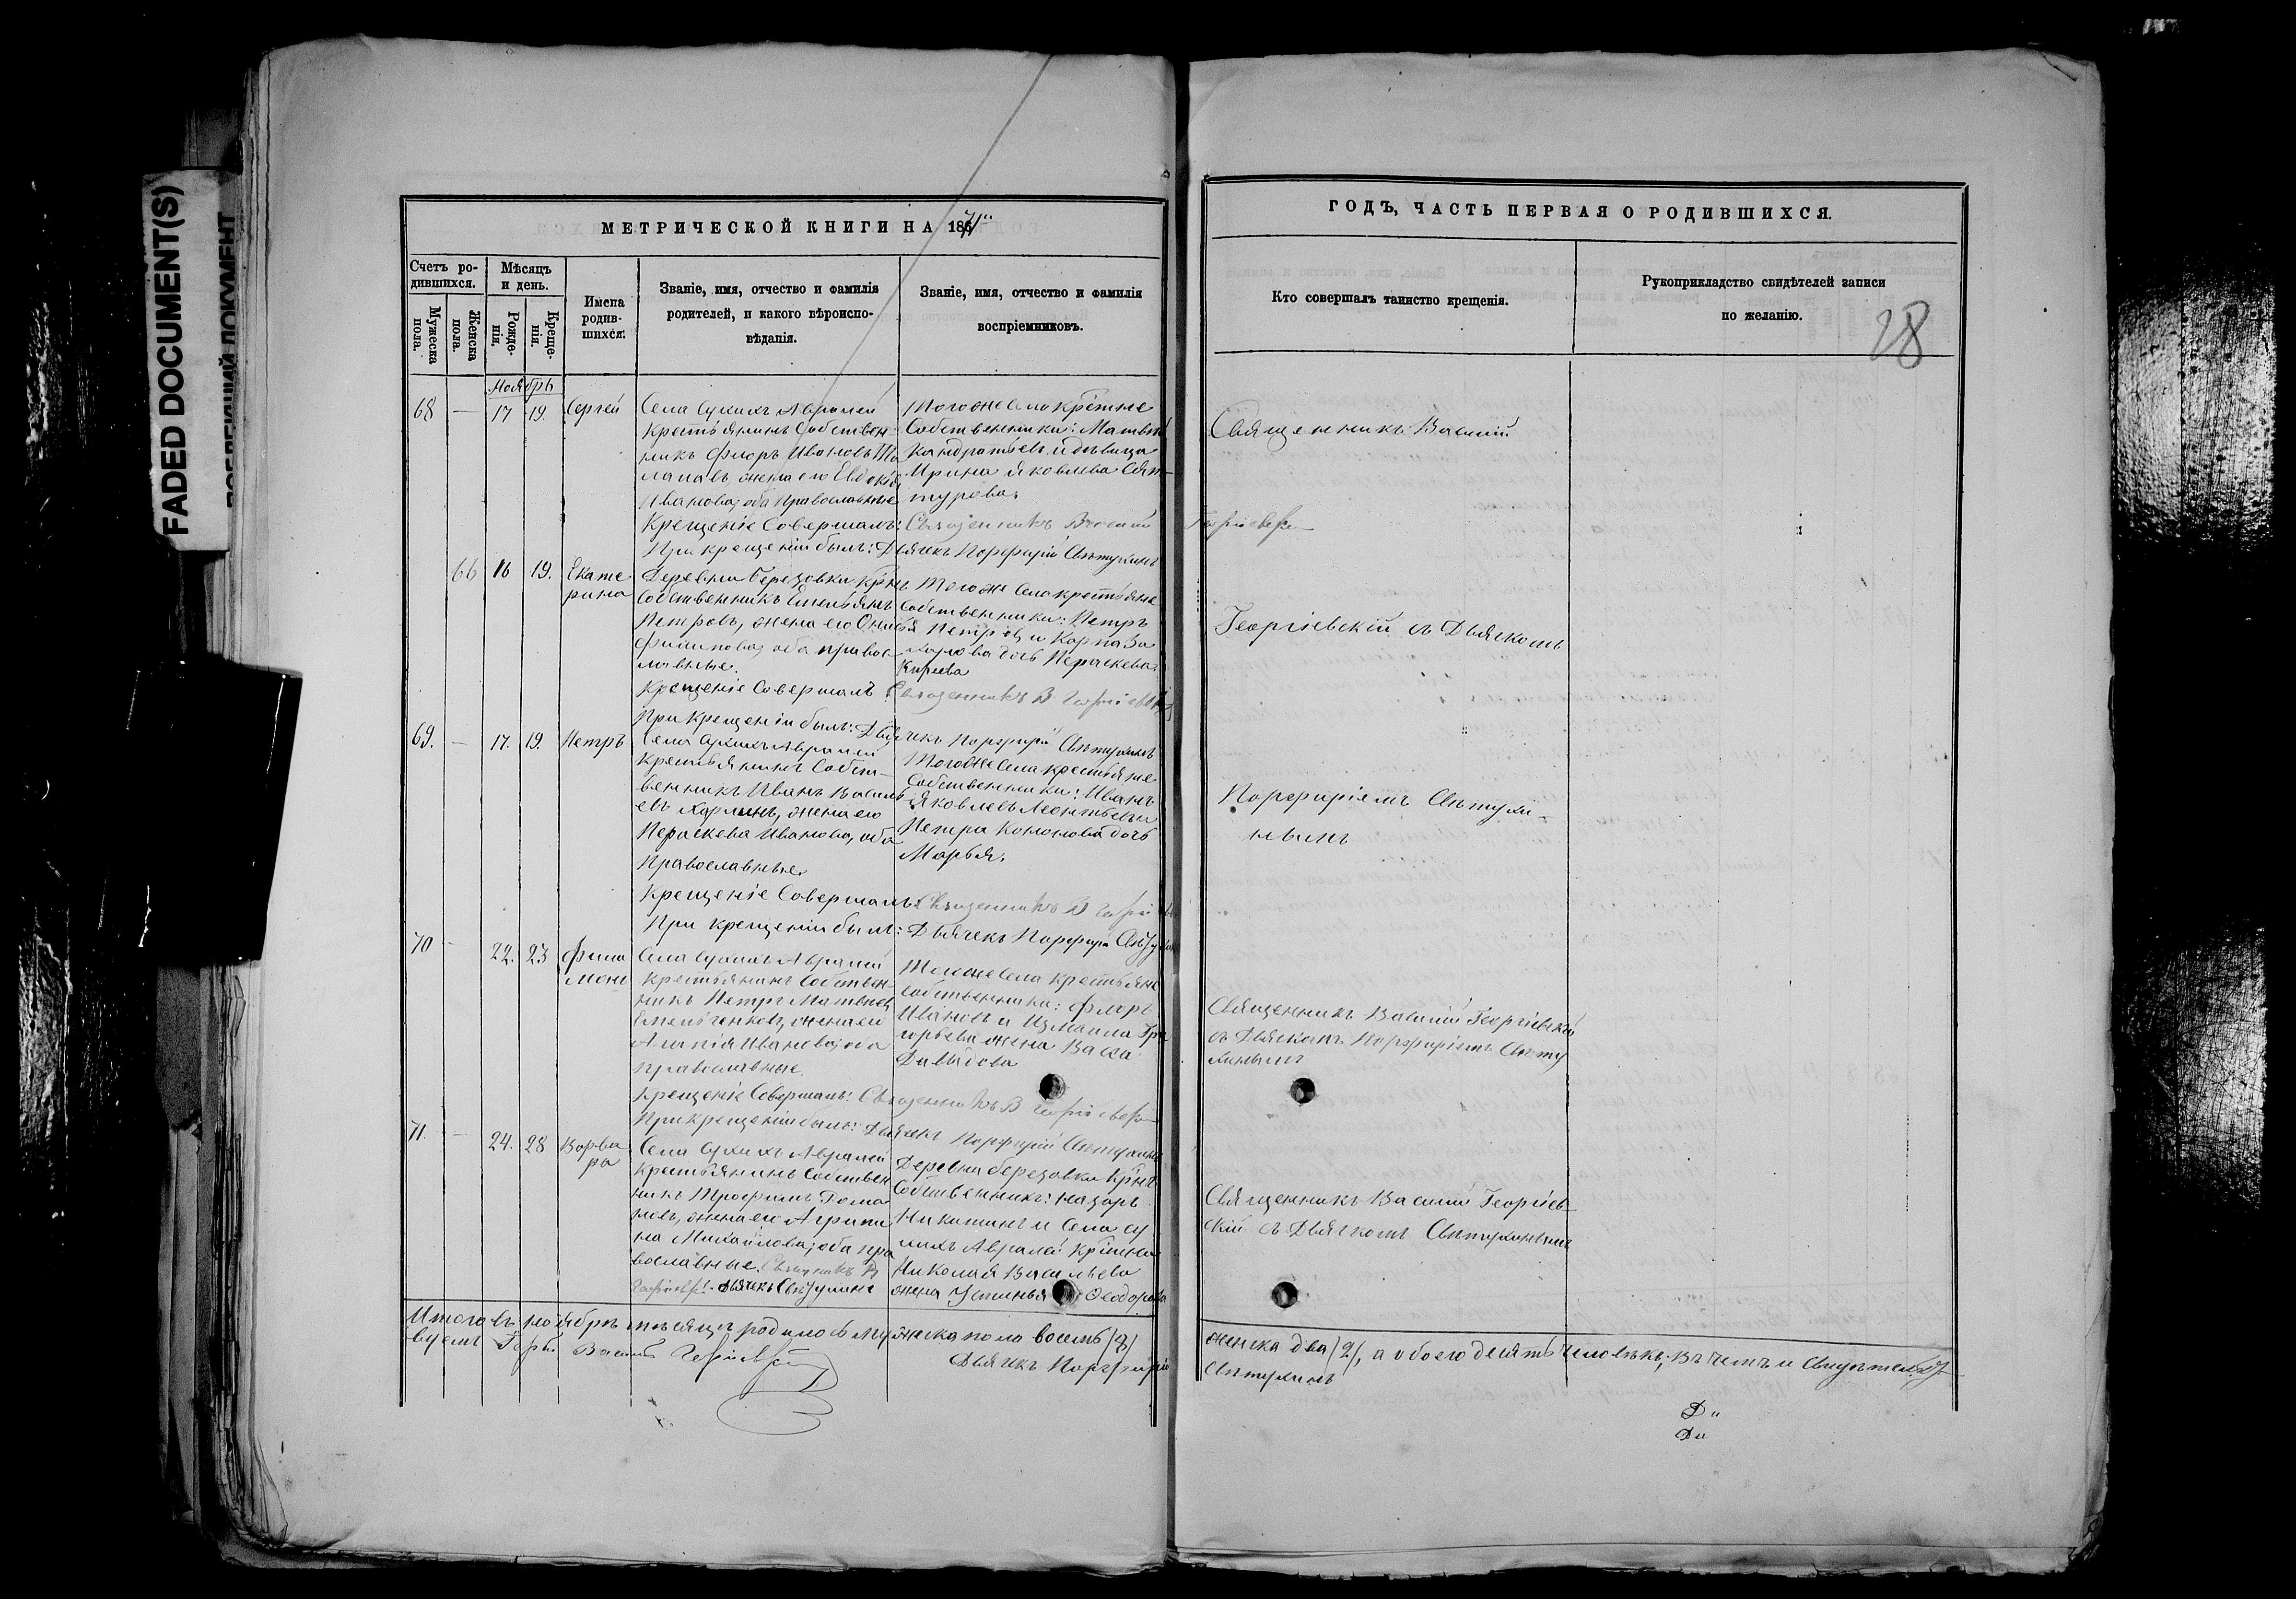 FADED DOCUMENT(S)
МЕТРИЧЕСКОЙ КНИГИ НА 1871
Счетъ ро-
дившихся.
Мужеска
пола.
Женска
пола.
Мѣсяцъ
и день.
Рожде-
нія.
Креще-
нія.
Имена
родив-
шихся.
Званіе, имя, отчество и фамилія
родителей, и какого вѣроиспо-
вѣданія.
Званіе, имя, отчество и фамилія
воспріемниковъ.
Ноябрь
68 — 17 19. Сергей
Села Сухихъ Авралей
Крестьянинъ Собствен-
никъ Флоръ Ивановъ
жена его Евдокія
Иванова, оба Православные
Тогоже Села
Собственники: Матвей
Кандратьевъ и девица
Ирина Яковлева
Крещеніе Совершалъ: Священникъ Василий Георгіевскій
При крещеніи былъ: Дьячекъ Порфирій Свѣтухинъ
66 16 19. Екате
рина
Деревни Березовки
Собственникъ Емельянъ
Петровъ, жена его
Филипова, оба правос
лавные.
Тогоже Села крестьяне
Собственники: Петръ
Петровъ и Карпа За
харова дочь Пераскева
Киреева
Крещеніе Совершалъ: Священникъ В. Георгіевскій
При Крещеніи былъ: Дьячекъ Порфирій Свѣтухинъ
69. — 17. 19. Петръ
Села Сухихъ Авралей
Крестьянинъ Собст-
венникъ Иванъ Василь
евъ Харлинъ, жена его
Пераскева Иванова, оба
Православные
Тогоже Села крестьяне
Собственники: Иванъ
Яковлевъ Леонтьевъ и
Петра Кононова дочь
Марья.
Крещеніе Совершалъ: Священникъ В Георгіевскій
При крещеніи былъ: Дьячекъ Порфирій Свѣтухинъ
70 — 22. 23 Фили
монъ
Села Сухихъ Авралей
Крестьянинъ Собствен-
никъ Петръ Матвеевъ
Емельяновъ, жена его
Ивановa, оба
православные.
Тогоже Села Крестьяне
Собственники: Флоръ
Ивановъ и Измаила Гри
горьева жена Васса
Давыдова
Крещеніе Совершалъ: Священникъ В Георгіевскій
При крещеніи былъ: Дьячекъ Порфирій Свѣтухинъ
71. — 24. 28 Варва
ра
Села Сухихъ Авралей
Крестьянинъ Собствен
никъ Трофимъ Рома
новъ, жена его Агрипи
на Михайлова, оба пра
вославные. Священникъ В
Георгіевскій. Дьячекъ Свѣтухинъ
Деревни березовки
Собственникъ: Назаръ
Никитинъ и Села Су
хихъ Авралей
Николая Васильева
жена Устинья Феодорова
Итого въ ноябрѣ мѣсяцѣ родилось мужеска пола восемь (8)
Василій Георгіевскій
Дьячекъ Порфирій
ГОДЪ, ЧАСТЬ ПЕРВАЯ О РОДИВШИХСЯ.
Кто совершалъ таинство крещенія.
Рукоприкладство свидѣтелей записи
по желанію.
28
Священникъ Василий
Георгіевскій съ Дьячкомъ
Порфиріемъ Свѣтухи-
нымъ
Священникъ Василий Георгіевскій
съ Дьячкомъ Порфиріемъ Свѣту
хинымъ
Священникъ Василий Георгіев-
скій съ Дьячкомъ Свѣтухинымъ
женска два (2), а обоего десять человѣкъ; въ чемъ и
Свѣтухинъ